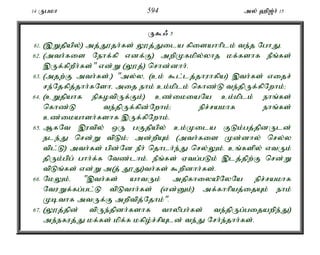 14 ருபமா 594 அல் ஹிஜ்ர் 15
ருகூஃ 5
61. (இறுதியில்) அத்தூதர்கள் லூத்துடைய கிளையாரிடம் வந்த போது
62. (அவர்களை நோக்கி எனக்கு) அறிமுகமில்லாத மக்களாக நீங்கள்
இருக்கிறீர்கள்" என்று (லூத்) சொன்னார்.
63. (அதற்கு அவர்கள்,) "அல்ல, (உம் கூட்டத்தாராகிய) இவர்கள் எதைச்
சந்தேகித்தார்களோ, அதை நாம் உம்மிடம் கொண்டு வந்திருக்கிறோம்;
64. (உறுதியாக நிகழவிருக்கும்) உண்மையையே உம்மிடம் நாங்கள்
கொண்டு வந்திருக்கின்றோம்; நிச்சயமாக நாங்கள்
உண்மையாளர்களாக இருக்கிறோம்.
65. ஆகவே இரவில் ஒரு பகுதியில் உம்முடைய குடும்பத்தினருடன்
நடந்து சென்று விடும்; அன்றியும் (அவர்களை முன்னால் செல்ல
விட்டு) அவர்கள் பின்னே நீர் தொடர்ந்து செல்லும். உங்களில் எவரும்
திரும்பிப் பார்க்க வேண்டாம். நீங்கள் ஏவப்படும் இடத்திற்கு சென்று
விடுங்கள் என்று அ(த் தூது)வர்கள் கூறினார்கள்.
66. மேலும், "இவர்கள் யாவரும் அதிகாலையிலேயே நிச்சயமாக
வேரறுக்கப்பட்டு விடுவார்கள் (என்னும்) அக்காரியத்தையும் நாம்
முடிவாக அவருக்கு அறிவித்தோம்".
67. (லூத்தின் விருந்தினர்களாக வாலிபர்கள் வந்திருப்பதையறிந்து)
அந்நகரத்து மக்கள் மிக்க மகிழ்ச்சியுடன் வந்து சேர்ந்தார்கள்.